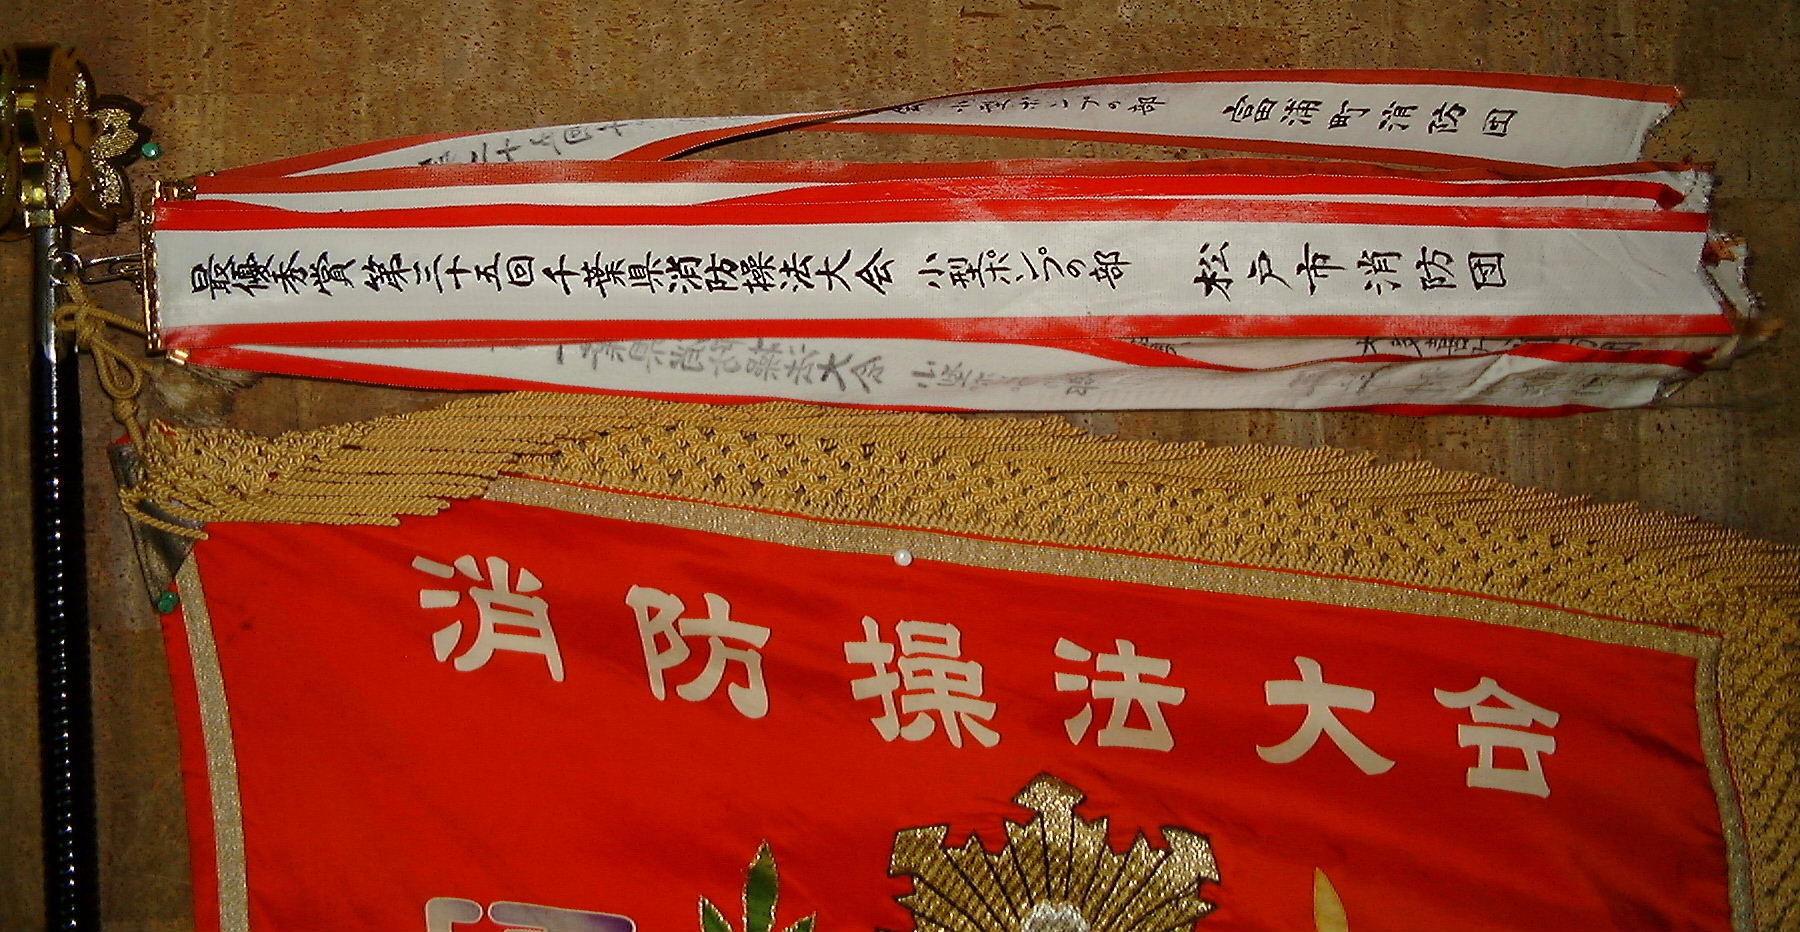 小型ポンプの部 富浦町消防団
最優秀賞第三十五回千葉県消防操法大会 小型ポンプの部 松戸市消防団
葉県消防操法大会 小型
消防操法大会